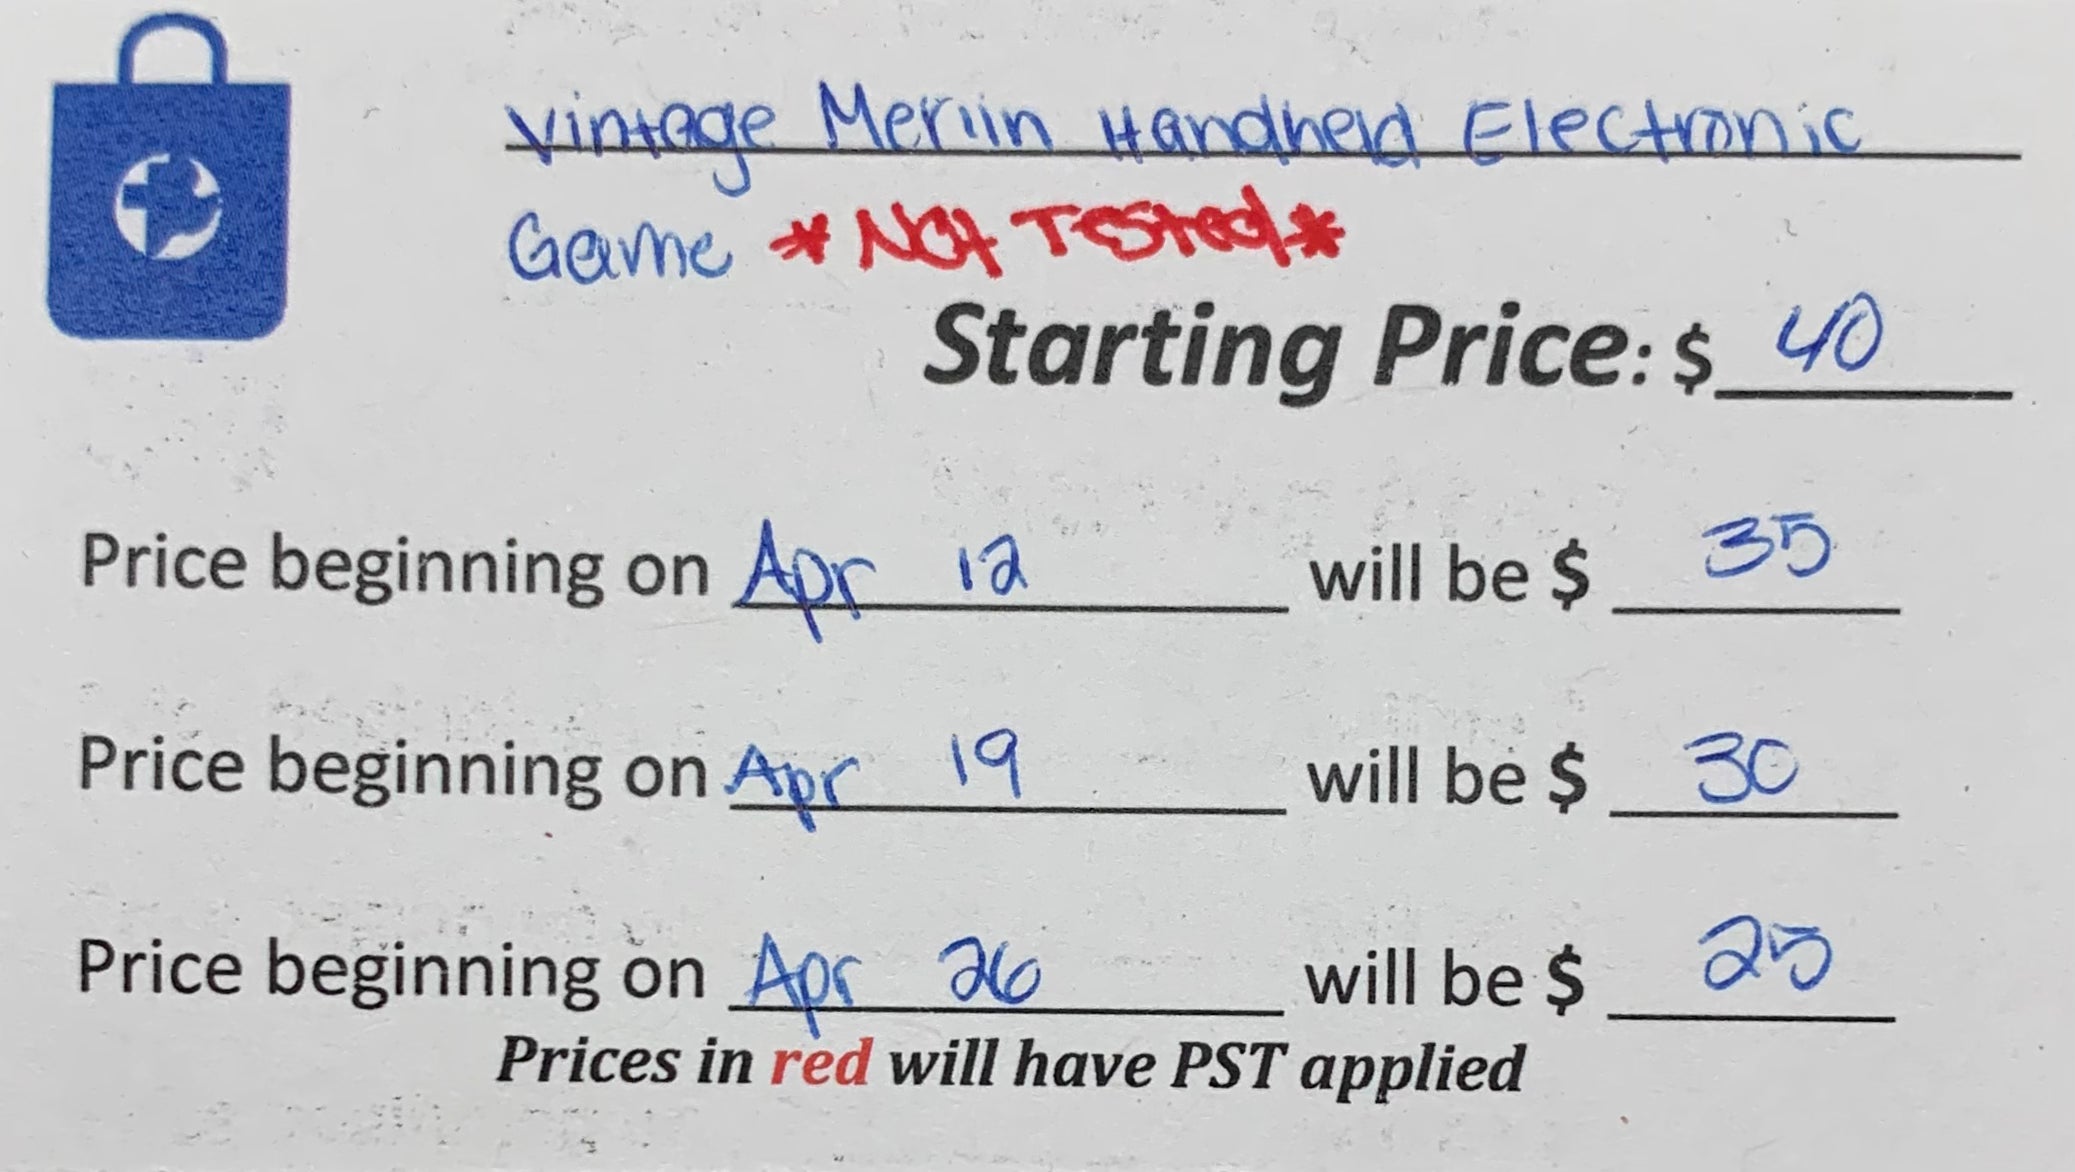 Vintage Merlin Handheld Electronic
Game *Not Tested*
Starting Price: $ 40
Price beginning on Apr 12 will be $ 35
Price beginning on Apr 19 will be $ 30
Price beginning on Apr 26 will be $ 25
Prices in red will have PST applied